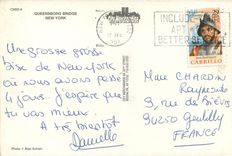 C3953-4
QUEENSBORO BRIDGE
NEW YORK
INCLUDE
APT
BETTER
29
USA
CABRILLO
Une grosse grosse
bise de New York
où nous avons passé
4 jours. J'espère que
tu vas mieux.
A très bientôt
Danielle
Mme CHARDIN
Raymonde
3 rue de Bièvres
92250 Gentilly
FRANCE
Photo © Alan Schein